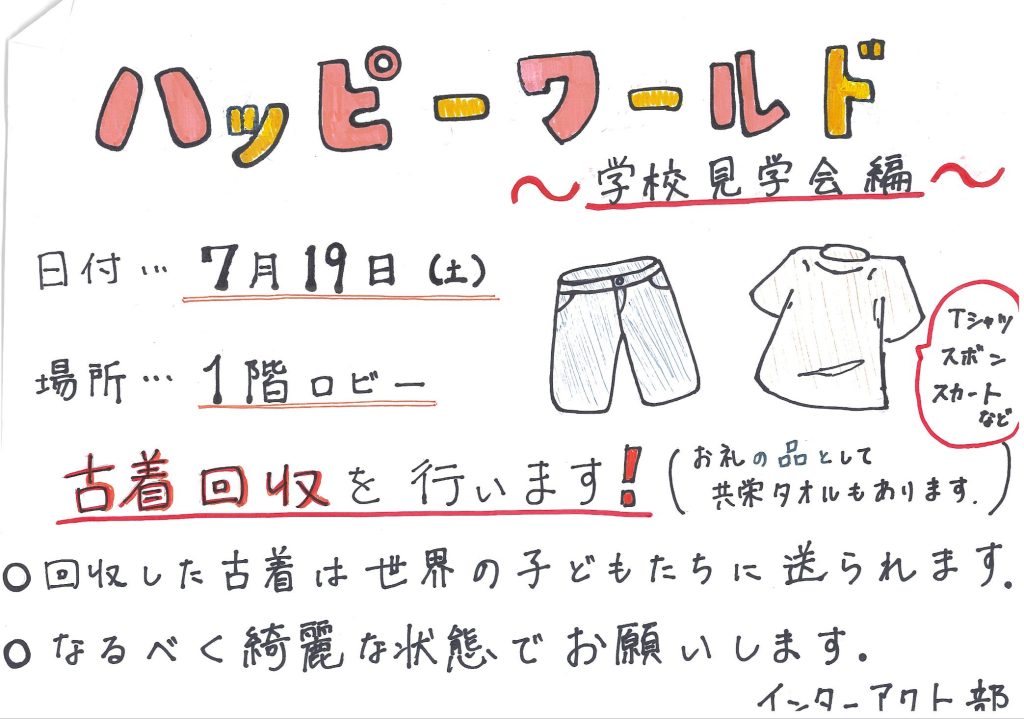 ハッピーワールド
〜学校見学会編〜
日付…7月19日(土)
場所…1階ロビー
Tシャツ
スボン
スカート
など
古着回収を行います!
(お礼の品として
共栄タオルもあります.)
○回収した古着は世界の子どもたちに送られます.
○なるべく綺麗な状態でお願いします.
インターアクト部